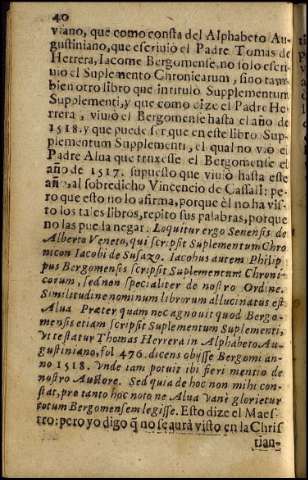 40
viano, que como consta del Alphabeto Au-
gustiniano, que escriuiò el Padre Tomas de
Herrera, Iacome Bergomense, no solo escri-
uio el Suplemento Chronicarum, sino tam-
bien otro libro que intitulo Supplementum
Supplementi, y que como dize el Padre He-
rrera, viuiò el Bergomense hasta el año de
1518. y que puede ser que en este libro Sup-
plementum Supplementi, el qual no vio el
Padre Alua que truxesse el Bergomense el
año de 1517. supuesto que viuiò hasta este
año, al sobredicho Vincencio de Cassali: pe-
ro que esto no lo afirma, porque èl no ha vis-
to los tales libros, repito sus palabras, porque
no las pueda negar. Loquitur ergo Senensis de
Alberto Veneto, qui scripsit Suplementum Chro
nicon Iacobi de Susazo. Iacobus autem Philip
pus Bergomensis scripsit Suplementum Chroni-
corum, sed non specialiter de nostro Ordine.
Similitudine nominum librorum allucinatus est
Alua Prater quam nec agnouit quod Bergo-
mensis etiam scripsit Suplementum Suplementi,
vt testatur Thomas Herrera in Alphabeto Au-
gustiniano, fol 476. dicens obijsse Bergomi an-
no 1518. Vnde tam potuit ibi fieri mentio de
nostro Auctore. Sed quia de hoc non mihi con-
stat, pro tanto hoc noto ne Alua vanè glorietur
totum Bergomensem legisse. Esto dize el Maes-
tro: pero yo digo q̃ no se aurà visto en la Chris
tian-